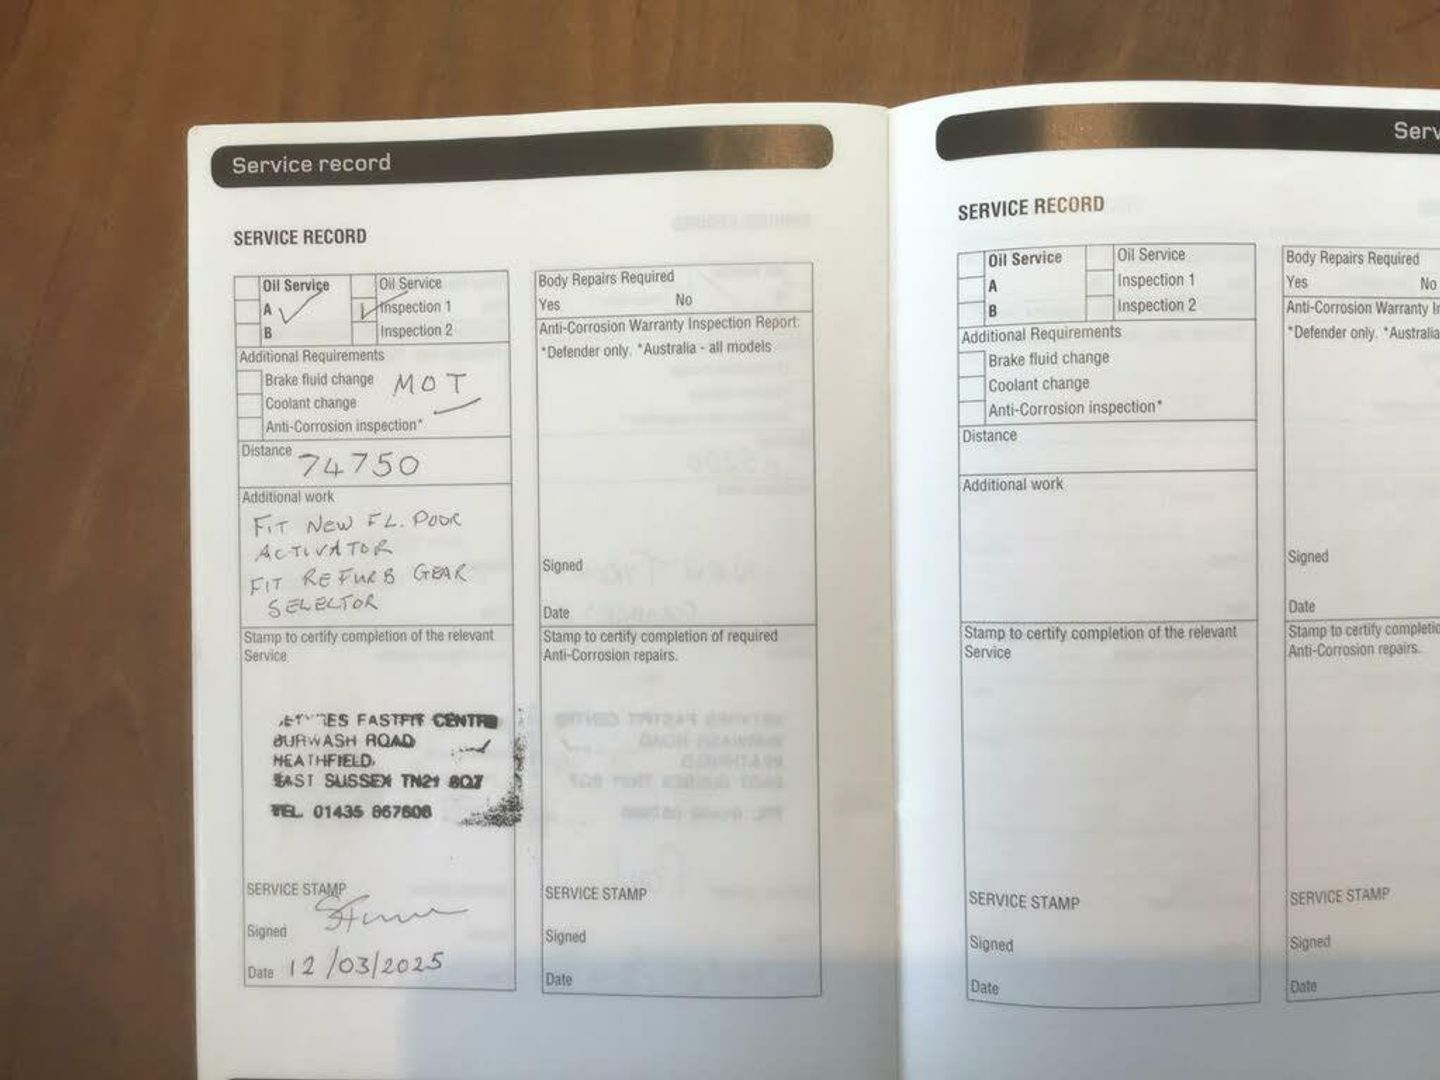 Service record
SERVICE RECORD
Oil Service
A
B
Oil Service
Inspection 1
Inspection 2
Additional Requirements
Brake fluid change
Coolant change
Anti-Corrosion inspection*
MOT
Distance 74750
Additional work
FIT NEW FL. DOOR
ACTIVATOR
FIT REFURB GEAR
SELECTOR
Stamp to certify completion of the relevant
Service
FASTFIT CENTRE
BURWASH ROAD
HEATHFIELD
EAST SUSSEX TN21 8QT
TEL. 01435 867608
SERVICE STAMP
Signed
Date 12/03/2025
Body Repairs Required
Yes No
Anti-Corrosion Warranty Inspection Report:
*Defender only. *Australia - all models
Signed
Date
Stamp to certify completion of required
Anti-Corrosion repairs.
SERVICE STAMP
Signed
Date
Serv
SERVICE RECORD
Oil Service
A
B
Oil Service
Inspection 1
Inspection 2
Additional Requirements
Brake fluid change
Coolant change
Anti-Corrosion inspection*
Distance
Additional work
Stamp to certify completion of the relevant
Service
SERVICE STAMP
Signed
Date
Body Repairs Required
Yes No
Anti-Corrosion Warranty
*Defender only. *Australia
Signed
Date
Stamp to certify
Anti-Corrosion repairs.
SERVICE STAMP
Signed
Date